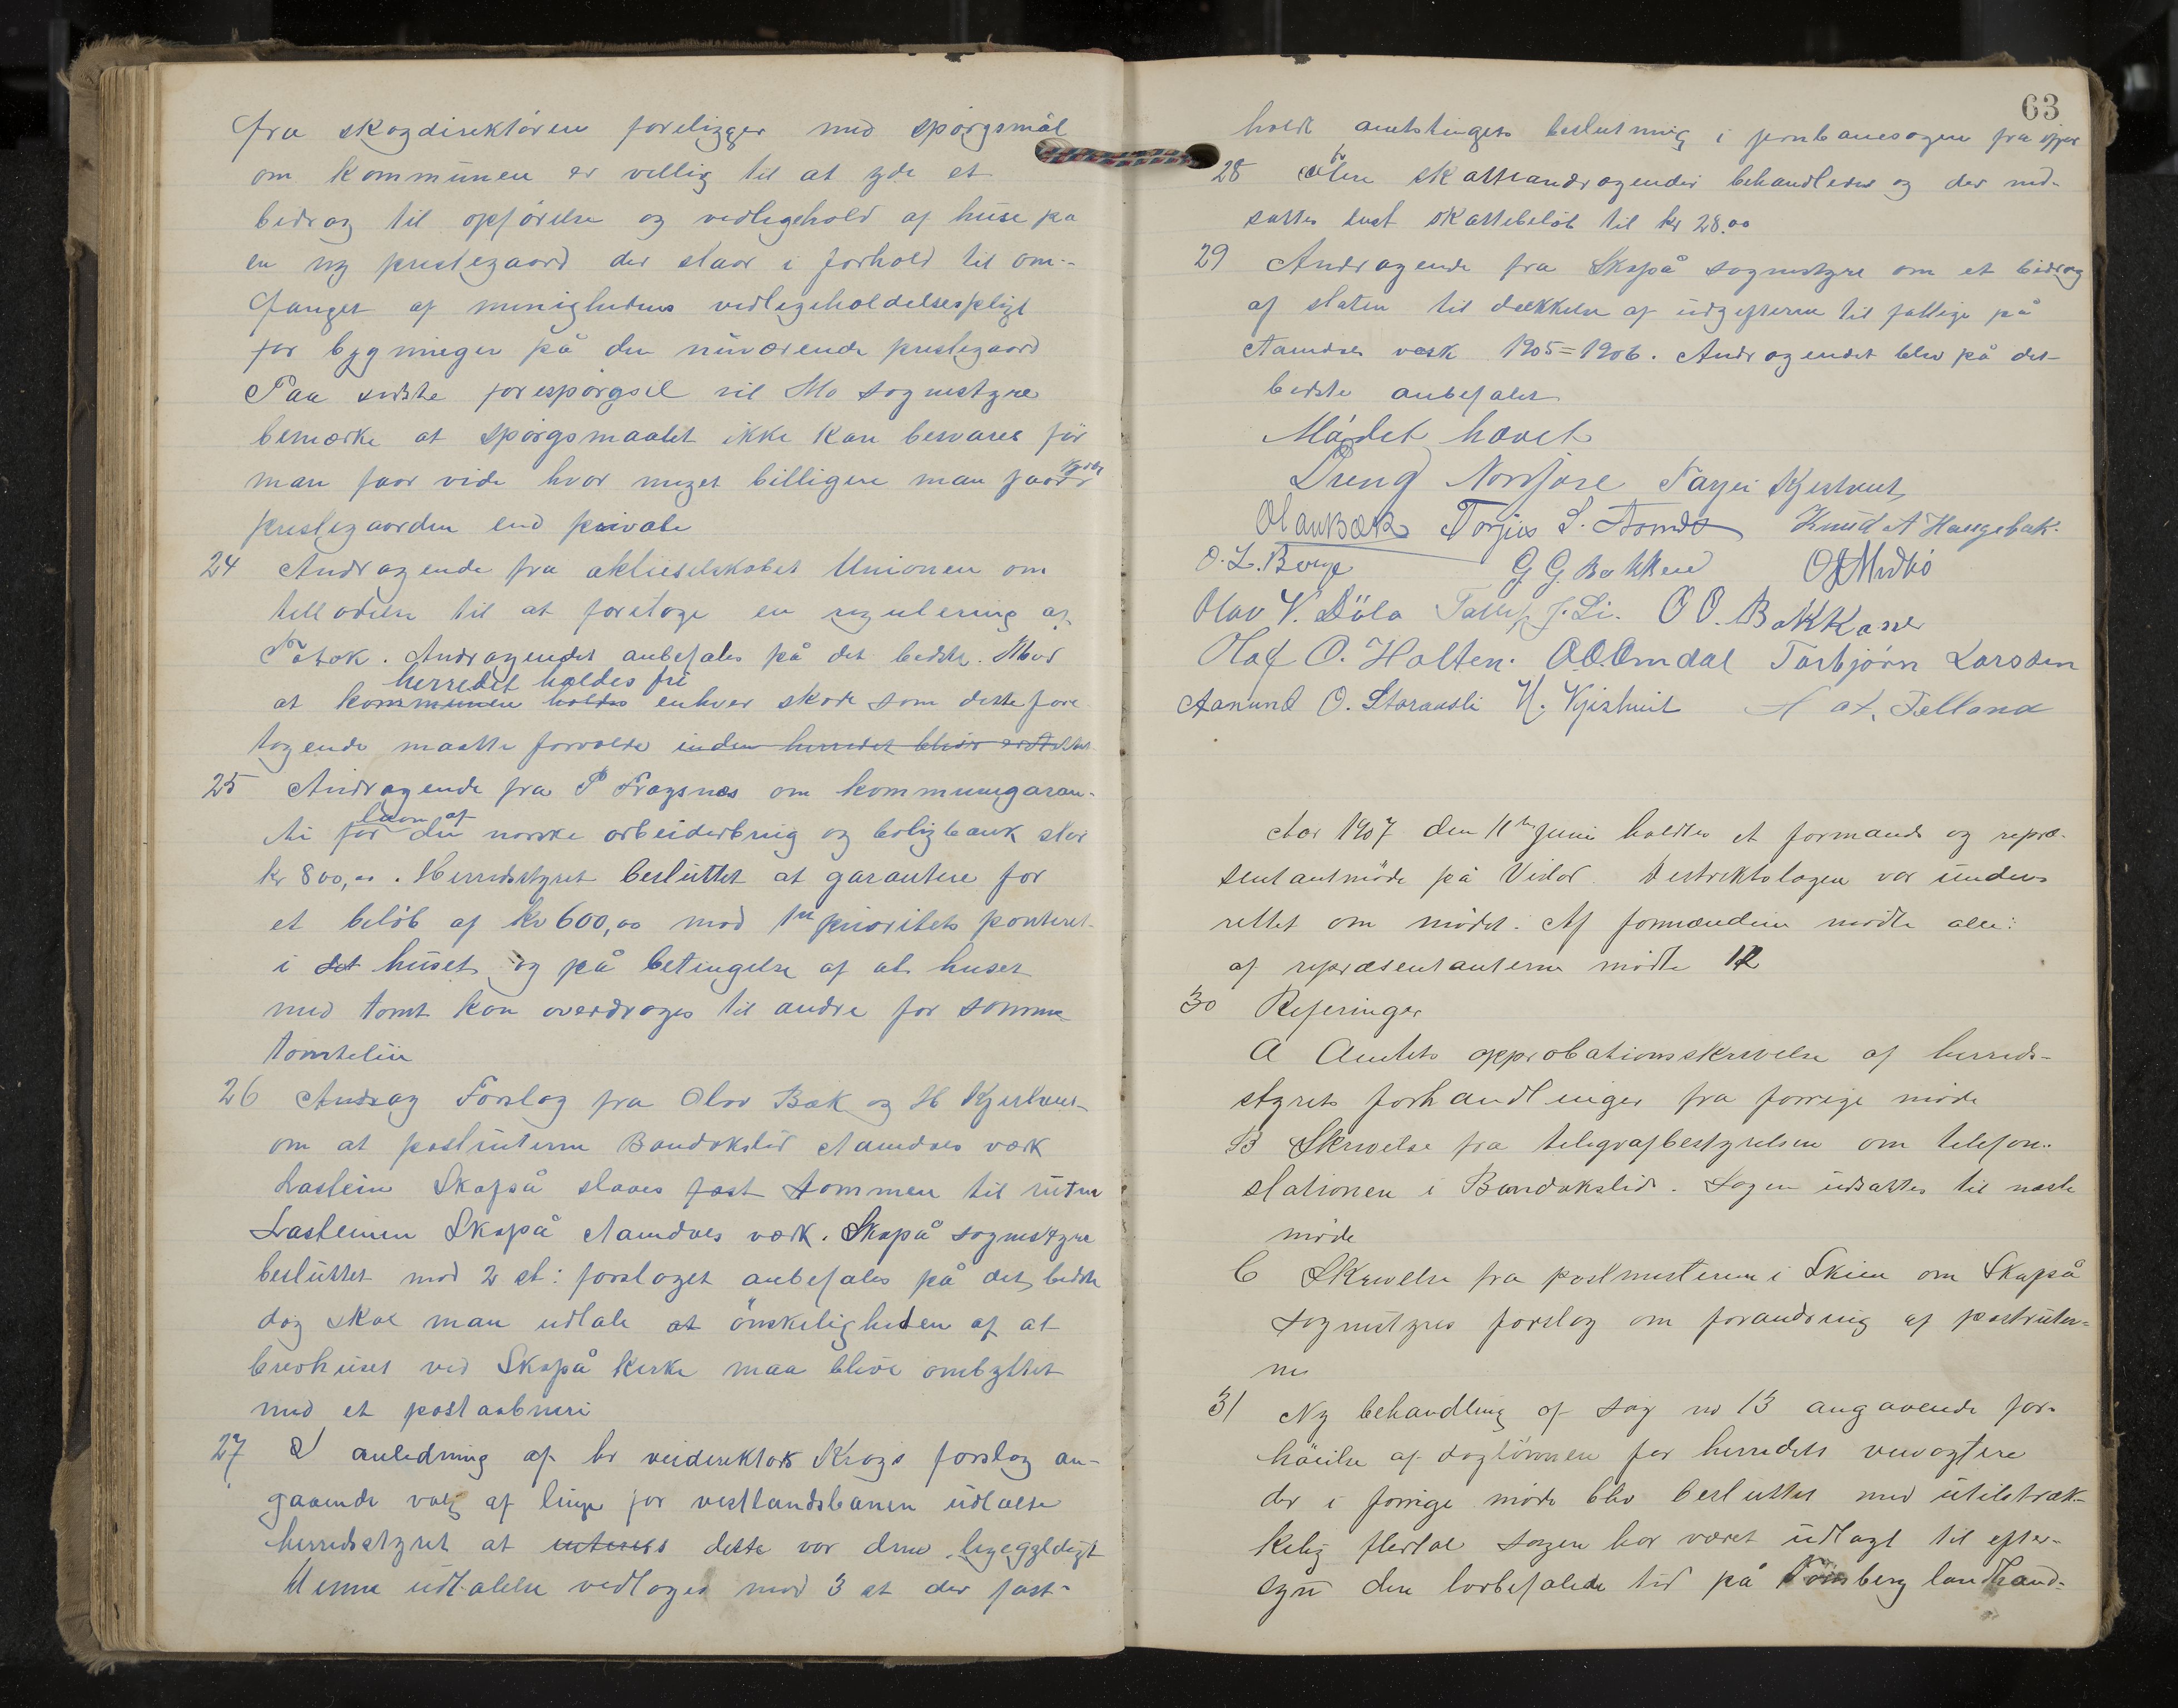 fra skogdirektören foreligger med spörgsmål
om kommunen er villig til at yde et
bidrag til opförelse og vedligehold af huse pa
en ny prestegaard der staar i forhold til om-
fanget af menighedens vedligeholdelsespligt
for bygninger på den nuværende prestegaard
Paa sidste forespörgsel vil Mo sognestyre
bemærke at spörgsmaalet ikke kan besvares för
man faar vide hvor meget billigere man faar
prestegaarden end private
24 Andragende fra aktieselskabet Unionen om
tilladelse til at foretage en regulering af
Totak. Andragendet anbefales på det bedste. Mod
herredet holdes fri
at kommunen holdes enhver skade som dette fore
tagende maatte forvolde inden herredet blir erstattet
25 Andragende fra P Fragsnes om kommunegaran-
laan af
ti for den norske arbeiderbrug og boligbank stor
kr 800,00. Herredsstyret besluttet at garantere for
et belöb af kr 600,00 mod 1ste prioritets panteret
i det huset og på betingelse af at huset
med tomt kan overdrages til andre for samme
tomteleie
26 Andrag Forslag fra Olav Bæk og H Kjerkvus
om at postruterne Bandakslid Aamdals værk
Lastein Skafså slaaes fast sammen til ruten
Lasteinen Skafså Aamdals værk. Skafså sognestyre
besluttet mod 2 st: forslaget anbefales på det bedste
dog skal man udtale at önskeligheden af at
brevhuset ved Skafså kirke maa blive ombyttet
med et postaabneri
27 I anledning af hr veidirektör Krags forslag an-
gaaende valg af linje for vestlandsbanen udtalte
herredsstyret at interess dette var dem ligegyldigt
Denne udtalelse vedtages mod 3 st der fast-
63
holdt amtstingets beslutning i jernbanesagen fra ifjor
28 to skatteandragender behandledes og der ned-
sattes tvest skattebelöb til kr 28.00
29 Andragende fra Skafså sognestyre om et bidrag
af staten til dækkelse af udgifterne til fattige på
Aamdals værk 1905=1906. Andragendet blev på det
bedste anbefalet
Mödet hævet
Dreng Norsjore Tarjei Kjerkvut
Olav Bæk Torjus S. Aamdal Knud A Haugebak.
O. L. Borge G G Bakken O J Midbö
Olav V. Döla Tallef J. Li. O O. Bakkane
Olaf O. Holten. O.O. Omdal Torbjörn Larsson
Aanund O. Storaasli H. Kjerkvut A at. Felland
Aar 1907 den 11te juni holdtes et formands og repræ-
sentantmöde på Vislar Destriktslægen var under-
rettet om mödet. Af formændene mödte alle:
af repræsentanterne mödte 12
30 Referinger
A Amtets approbationsskrivelse af herreds-
styrets forhandlinger fra forrige möde
B Skrivelse fra telegrafbestyrelsen om telefon-
stationen i Bandakslid. Sagen udsattes til næste
möde
C Skrivelse fra postmesteren i Skien om Skafså
sognestyres forslag om forandring af postruter-
ne
31 Ny behandling af sag no 13 angaaende for-
höielse af daglönnen for herredets veivogtere
der i forrige möde blev besluttet med utilstræk-
kelig flertal Sagen har været udlagt til efter-
syn den lovbefalede tid på Tönsberg landhand-